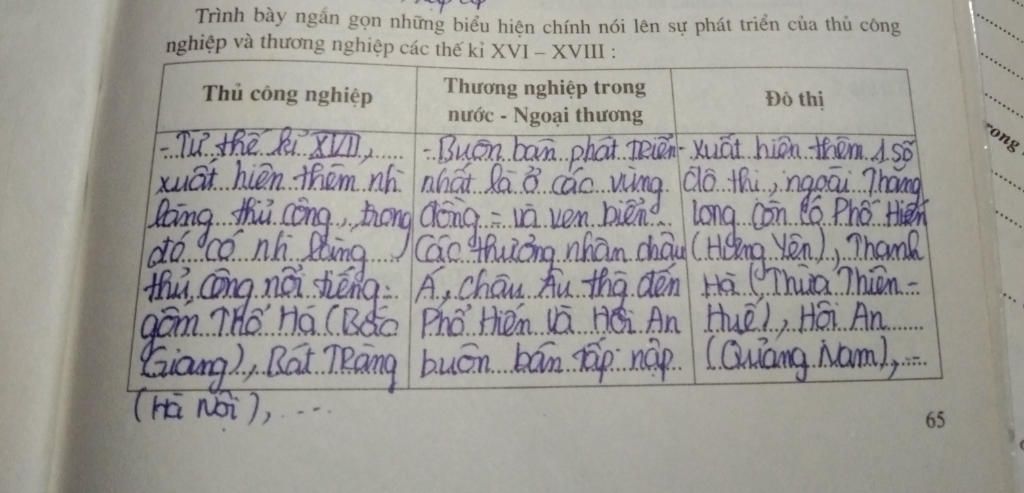 Trình bày ngắn gọn những biểu hiện chính nói lên sự phát triển của thủ công
nghiệp và thương nghiệp các thế kỉ XVI – XVIII :
Thủ công nghiệp
- Từ thế kỉ XVII,
xuất hiện thêm nh
làng thủ công, trong
đó có nh làng
thủ công nổi tiếng:
gốm Thổ Hà (Bắc
Giang), Bát Tràng
(Hà Nội), ....
Thương nghiệp trong
nước - Ngoại thương
- Buôn bán phát triển
nhất là ở các vùng
đồng = và ven biển
Các thương nhân châu
Á, châu Âu thg đến
Phố Hiến và Hội An
buôn bán tấp nập
Đô thị
- xuất hiện thêm 1 số
đô thị, ngoài Thăng
long còn có Phố Hiến
(Hưng Yên), Thanh
Hà (Thừa Thiên -
Huế), Hội An
(Quảng Nam), ....
65